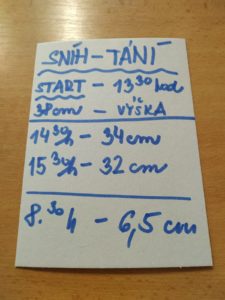 SNÍH - TÁNÍ
START - 13³⁰ hod
38cm - VÝŠKA
14³⁰h - 34cm
15³⁰h - 32cm
8.³⁰h - 6,5 cm